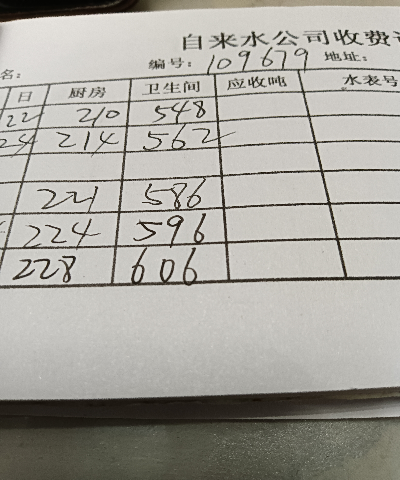 自来水公司收费
编号: 109679 地址:
名:
日 厨房 卫生间 应收吨 水表号
22 210 548
24 214 562
221 586
224 596
228 606